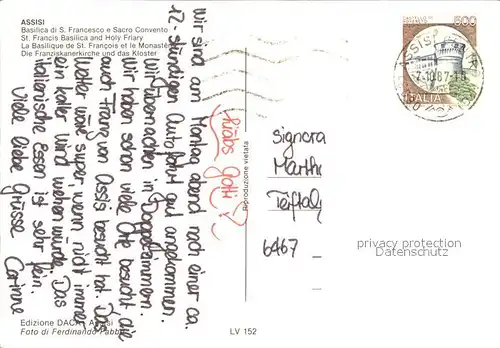 ASSISI
Basilica di S. Francesco e Sacro Convento
St. Francis Basilica and Holy Friary
La Basilique de St. François et le Monastère
Die Franziskanerkirche und das Kloster
Liebs Gotti!
Wir sind am Montag abend nach einer ca.
12-stündigen Autofahrt gut angekommen.
Wir übernachten in Doppelzimmern.
Wir haben schon viele Orte besucht die
auch Franz von Assisi besucht hat. Das
Wetter wäre super wenn nicht immer
ein kalter Wind wehen würde. Das
italienische Essen ist sehr fein.
Viele liebe Grüsse
Corinne
Edizione DACA - Assisi
Foto di Ferdinando Fabbri
LV 152
Riproduzione vietata
500
ITALIA
ASSISI
7.10.87
Signora
6467
privacy protection
VERITAS